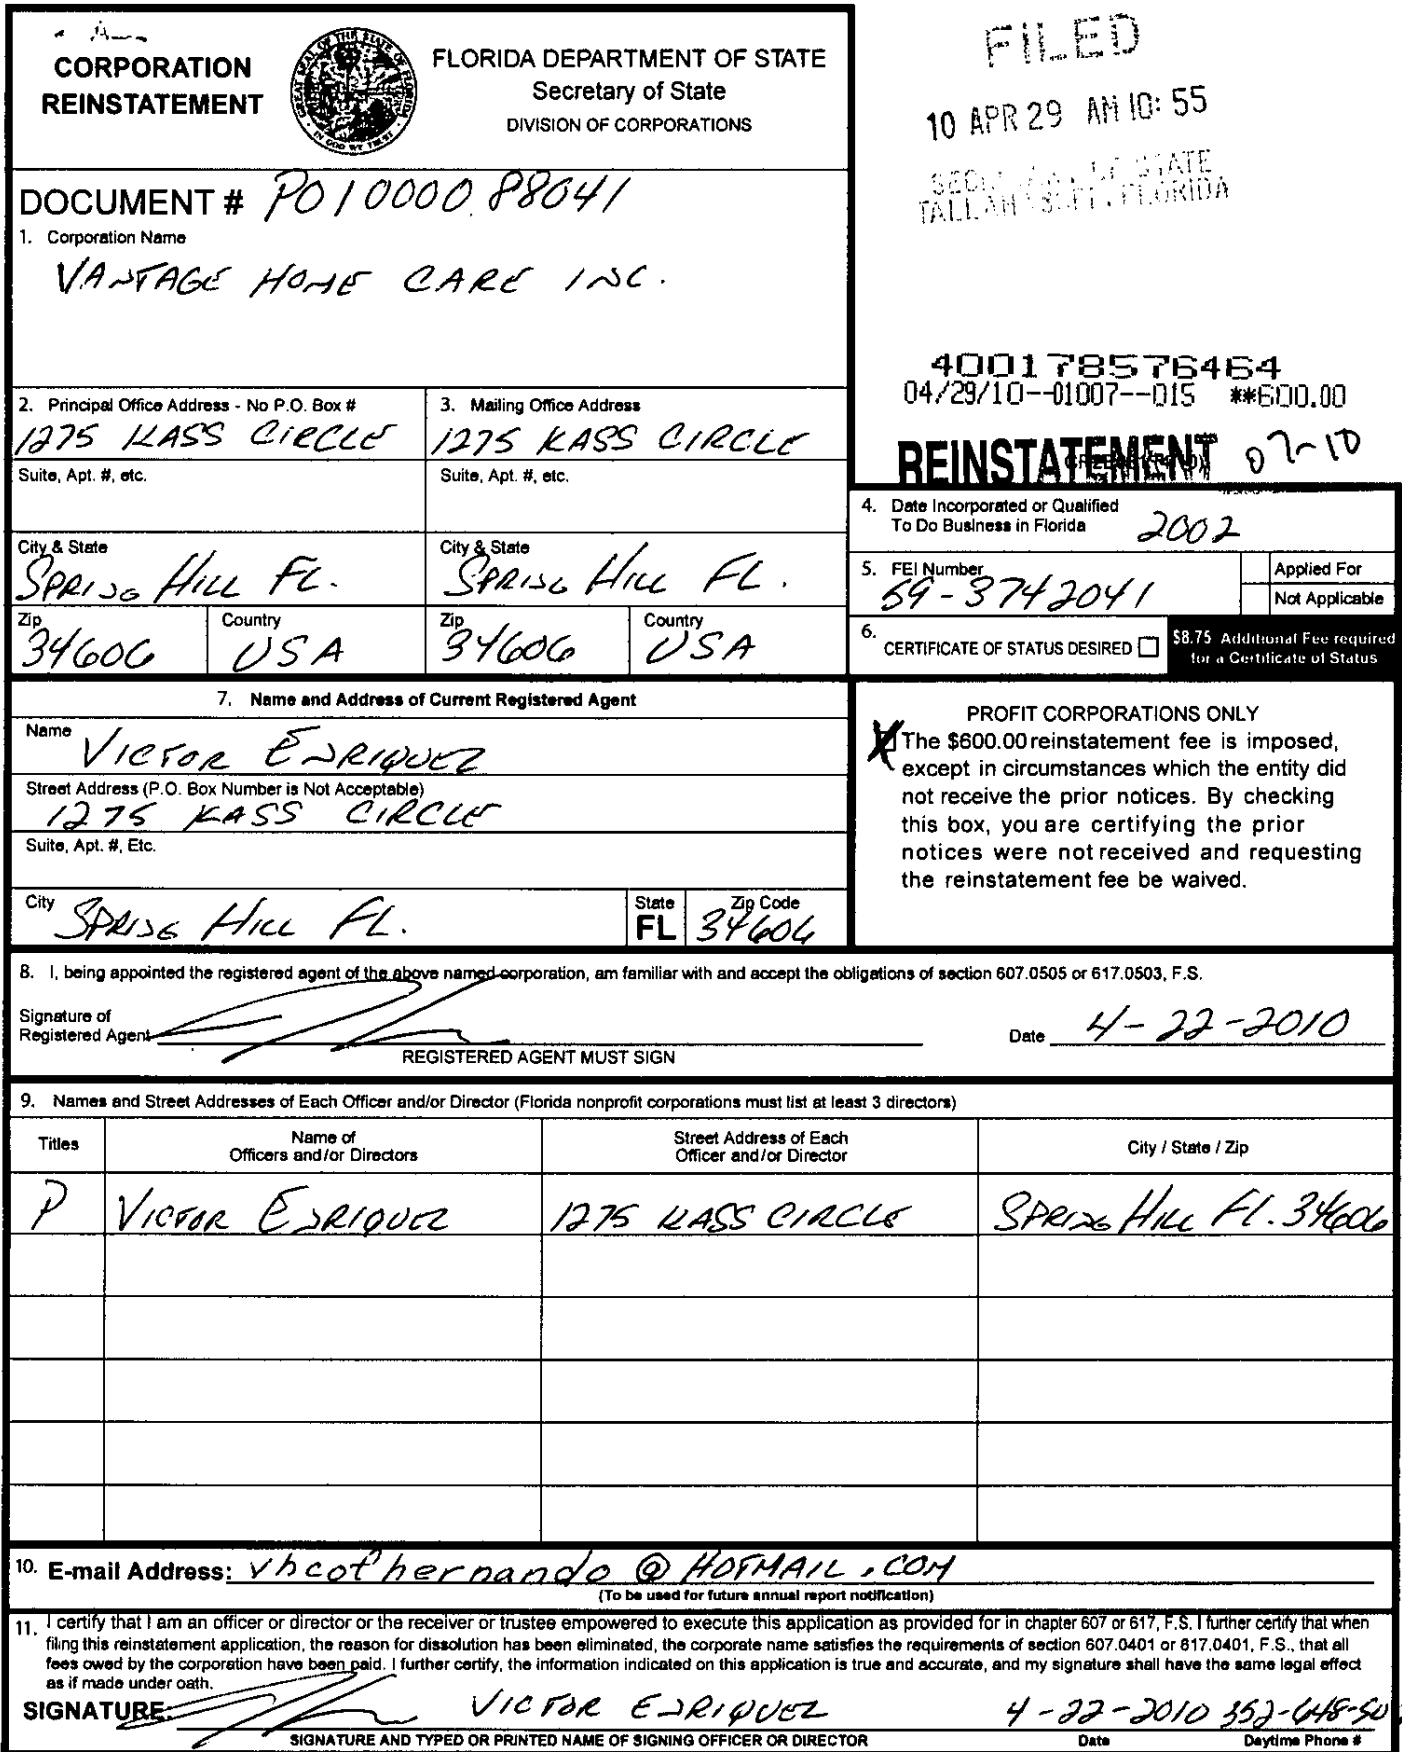 CORPORATION
REINSTATEMENT
FLORIDA DEPARTMENT OF STATE
Secretary of State
DIVISION OF CORPORATIONS
FILED
10 APR 29 AM 10: 55
SECRETARY OF STATE
TALLAHASSEE, FLORIDA
DOCUMENT # P01000088041
1. Corporation Name
VANTAGE HOME CARE INC.
400178576464
04/29/10--01007--015 **600.00
REINSTATEMENT 07-10
2. Principal Office Address - No P.O. Box #
1275 KASS CIRCLE
3. Mailing Office Address
1275 KASS CIRCLE
Suite, Apt. #, etc.
Suite, Apt. #, etc.
City & State
SPRING HILL FL.
City & State
SPRING HILL FL.
Zip
34606
Country
USA
Zip
34606
Country
USA
4. Date Incorporated or Qualified
To Do Business in Florida 2002
5. FEI Number
59-3742041
Applied For
Not Applicable
6. CERTIFICATE OF STATUS DESIRED
$8.75 Additional Fee required
for a Certificate of Status
7. Name and Address of Current Registered Agent
Name VICTOR ENRIQUEZ
Street Address (P.O. Box Number is Not Acceptable)
1275 KASS CIRCLE
Suite, Apt. #, Etc.
City SPRING HILL FL.
State
FL
Zip Code
34606
PROFIT CORPORATIONS ONLY
X The $600.00 reinstatement fee is imposed,
except in circumstances which the entity did
not receive the prior notices. By checking
this box, you are certifying the prior
notices were not received and requesting
the reinstatement fee be waived.
8. I, being appointed the registered agent of the above named corporation, am familiar with and accept the obligations of section 607.0505 or 617.0503, F.S.
Signature of
Registered Agent
REGISTERED AGENT MUST SIGN
Date 4-22-2010
9. Names and Street Addresses of Each Officer and/or Director (Florida nonprofit corporations must list at least 3 directors)
Titles
Name of
Officers and/or Directors
Street Address of Each
Officer and/or Director
City / State / Zip
P VICTOR ENRIQUEZ 1275 KASS CIRCLE SPRING HILL FL. 34606
10. E-mail Address: vhcofhernando @ HOTMAIL.COM
(To be used for future annual report notification)
11. I certify that I am an officer or director or the receiver or trustee empowered to execute this application as provided for in chapter 607 or 617, F.S. I further certify that when
filing this reinstatement application, the reason for dissolution has been eliminated, the corporate name satisfies the requirements of section 607.0401 or 617.0401, F.S., that all
fees owed by the corporation have been paid. I further certify, the information indicated on this application is true and accurate, and my signature shall have the same legal effect
as if made under oath.
SIGNATURE: VICTOR ENRIQUEZ 4-22-2010 352-648-50
SIGNATURE AND TYPED OR PRINTED NAME OF SIGNING OFFICER OR DIRECTOR
Date
Daytime Phone #